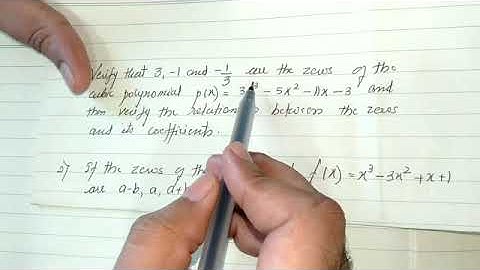 Verify that 3, -1 and -1/3 are the zeros of the
cubic polynomial p(x) = 3x³ - 5x² - 11x - 3 and
then verify the relation between the zeros
and its coefficients.
2) If the zeros of the f(x) = x³ - 3x² + x + 1
are a-b, a, a+